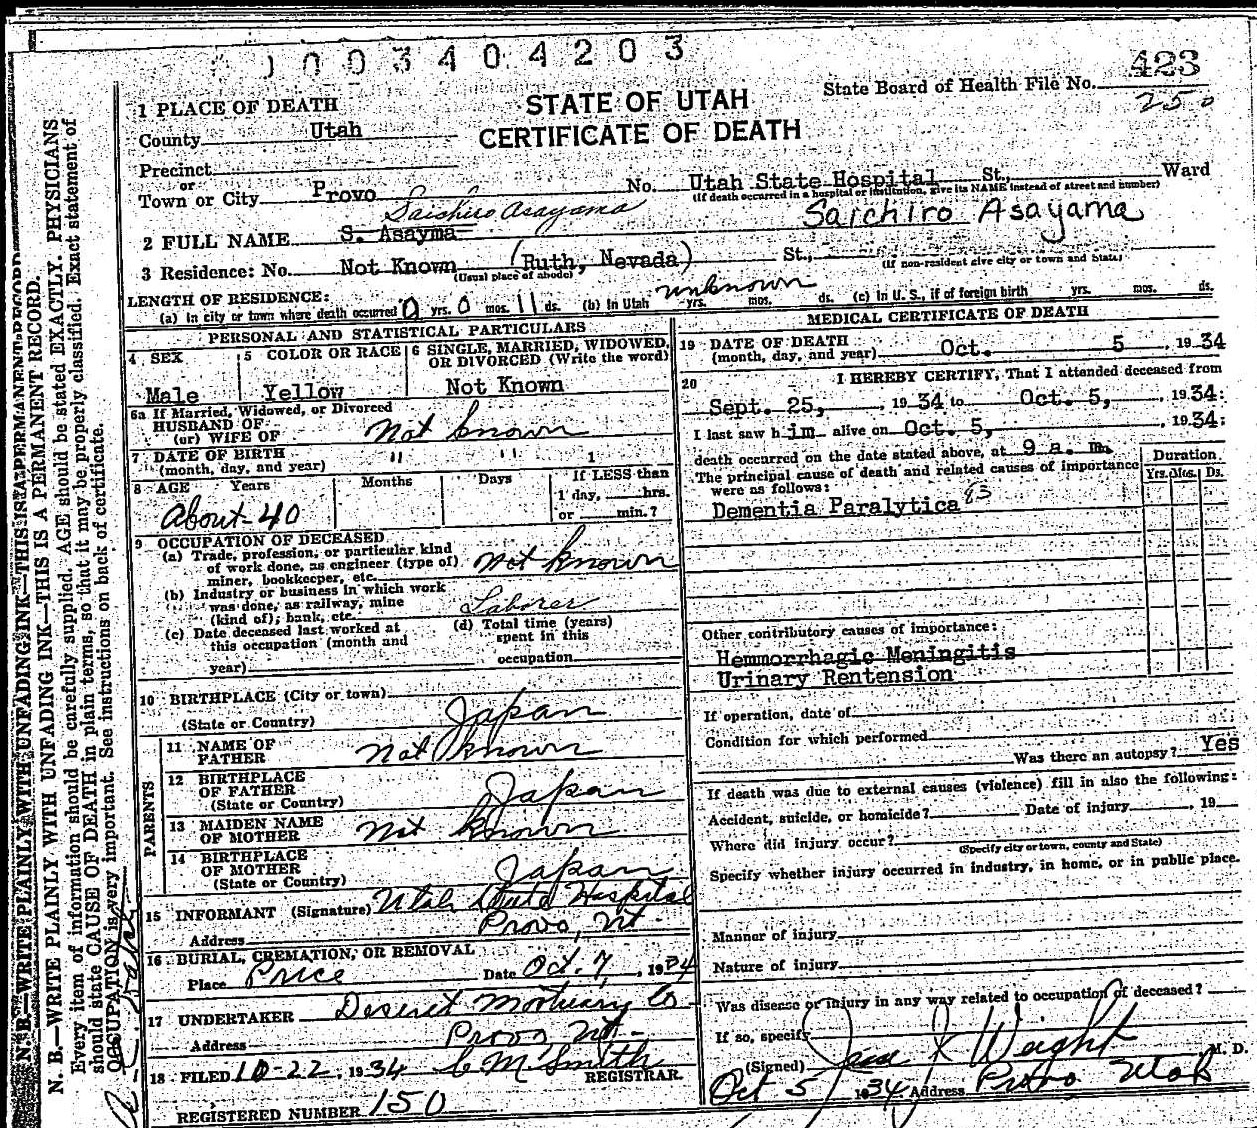 1003404203
423
State Board of Health File No.
250
STATE OF UTAH
CERTIFICATE OF DEATH
1 PLACE OF DEATH
County Utah
Precinct
or
Town or City Provo No. Utah State Hospital St., Ward
(If death occurred in a hospital or institution, give its NAME instead of street and number)
Saichiro Asayama Saichiro Asayama
2 FULL NAME S. Asayma
3 Residence: No. Not Known (Ruth, Nevada) St.,
(Usual place of abode) (If non-resident give city or town and State)
LENGTH OF RESIDENCE:
(a) In city or town where death occurred 0 yrs. 0 mos. 11 ds. (b) In Utah unknown yrs. mos. ds. (c) In U. S., if of foreign birth yrs. mos. ds.
PERSONAL AND STATISTICAL PARTICULARS
4 SEX 5 COLOR OR RACE 6 SINGLE, MARRIED, WIDOWED, OR DIVORCED (Write the word)
Male Yellow Not Known
6a If Married, Widowed, or Divorced
HUSBAND OF
(or) WIFE OF Not known
7 DATE OF BIRTH
(month, day, and year) " "
8 AGE Years Months Days If LESS than
1 day, hrs.
or min.?
About 40
9 OCCUPATION OF DECEASED
(a) Trade, profession, or particular kind
of work done, as engineer (type of)
miner, bookkeeper, etc. Not known
(b) Industry or business in which work
was done, as railway, mine
(kind of); bank, etc. Laborer
(c) Date deceased last worked at
this occupation (month and
year)
(d) Total time (years)
spent in this
occupation
10 BIRTHPLACE (City or town)
(State or Country) Japan
PARENTS
11 NAME OF
FATHER Not known
12 BIRTHPLACE
OF FATHER
(State or Country) Japan
13 MAIDEN NAME
OF MOTHER Not known
14 BIRTHPLACE
OF MOTHER
(State or Country) Japan
15 INFORMANT (Signature) Utah State Hospital
Address Provo, Ut
16 BURIAL, CREMATION, OR REMOVAL
Place Price Date Oct. 7, 1934
17 UNDERTAKER Deseret Mortuary Co
Address Provo Ut
18 FILED 10-22, 1934 C M Smith
REGISTRAR.
REGISTERED NUMBER 150
MEDICAL CERTIFICATE OF DEATH
19 DATE OF DEATH
(month, day, and year) Oct. 5, 1934
20 I HEREBY CERTIFY, That I attended deceased from
Sept. 25, 1934 to Oct. 5, 1934:
I last saw him alive on Oct. 5, 1934:
death occurred on the date stated above, at 9 a. m.
The principal cause of death and related causes of importance
were as follows:
Duration
Yrs. Mos. Ds.
Dementia Paralytica 83
Other contributory causes of importance:
Hemmorrhagic Meningitis
Urinary Rentension
If operation, date of
Condition for which performed
Was there an autopsy? Yes
If death was due to external causes (violence) fill in also the following:
Accident, suicide, or homicide? Date of injury, 19
Where did injury occur?
(Specify city or town, county and State)
Specify whether injury occurred in industry, in home, or in public place.
Manner of injury
Nature of injury
Was disease or injury in any way related to occupation of deceased?
If so, specify
(Signed) Weight M. D.
Oct 5 1934 Address Provo Utah
N. B.—WRITE PLAINLY WITH UNFADING INK—THIS IS A PERMANENT RECORD
N. B.—WRITE PLAINLY WITH UNFADING INK—THIS IS A PERMANENT RECORD.
Every item of information should be carefully supplied. AGE should be stated EXACTLY. PHYSICIANS
should state CAUSE OF DEATH in plain terms, so that it may be properly classified. Exact statement of
OCCUPATION is very important. See instructions on back of certificate.